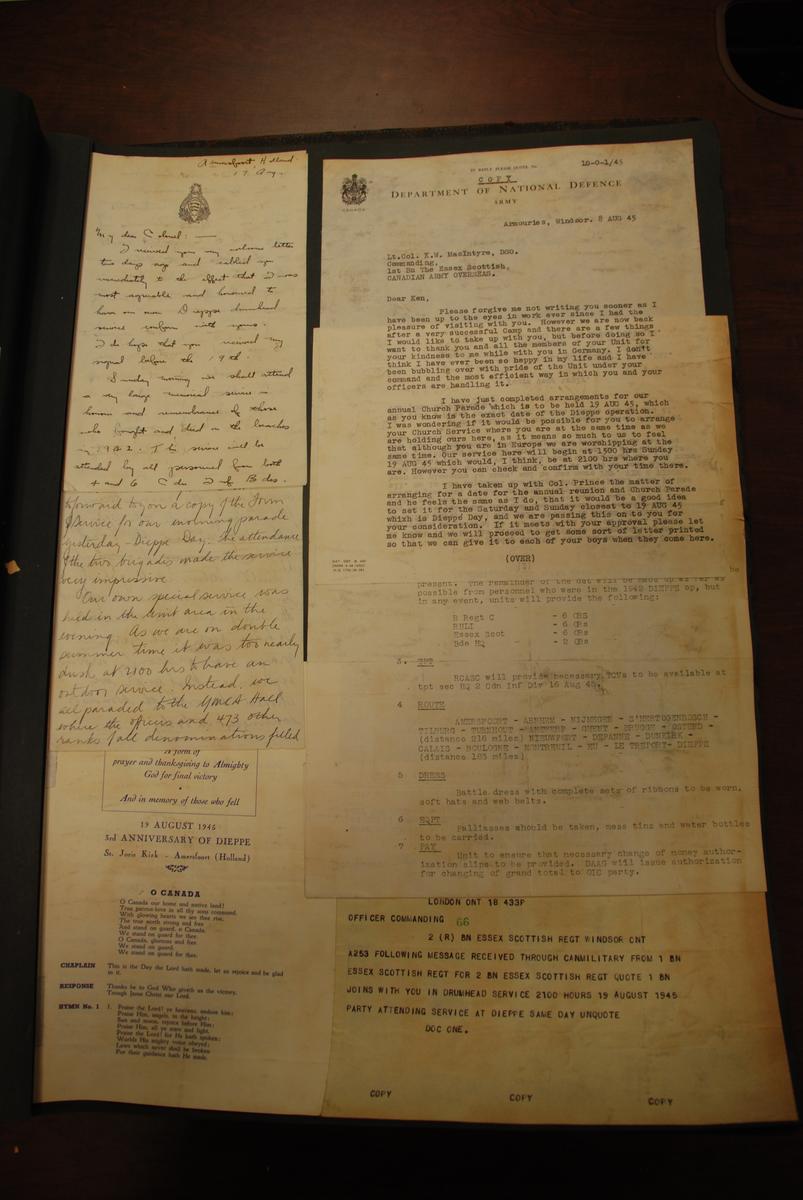 Amersfoort Holland
17 Aug.
My dear Colonel: —
I received your my welcome letter
two days ago and cabled you
immediately to the effect that I was
most agreeable and honoured to
have our own Dieppe drumhead
service conform with yours.
I do hope that you received my
signal before the 19th.
Sunday morning we shall attend
a very large memorial service in
honour and remembrance of those
who fought and died on the beaches
in 1942. This service will be
attended by all personnel from both
4 and 6 Cdn Inf Bdes.
forward to you a copy of the Form
of Service for our morning parade
yesterday - Dieppe Day. The attendance
of the two brigades made the service
very impressive
Our own special service was
held in the unit area in the
evening. As we are on double
summer time it was too nearly
dusk at 2100 hrs to have an
outdoor service. Instead, we
all paraded to the YMCA Hall
where the officers and 473 other
ranks of all denominations filled
A form of
prayer and thanksgiving to Almighty
God for final victory
And in memory of those who fell
19 AUGUST 1945
3rd ANNIVERSARY OF DIEPPE
St. Joris Kirk - Amersfoort (Holland)
O CANADA
O Canada our home and native land!
True patriot-love in all thy sons command.
With glowing hearts we see thee rise,
The true north strong and free
And stand on guard, o Canada,
We stand on guard for thee.
O Canada, glorious and free
We stand on guard,
We stand on guard for thee.
CHAPLAIN This is the Day the Lord hath made, let us rejoice and be glad
in it.
RESPONSE Thanks be to God Who giveth us the victory.
Trough Jesus Christ our Lord.
HYMN No. 1 1. Praise the Lord! ye heavens, andore him;
Praise Him, angels, in the height;
Sun and moon, rejoice before Him;
Praise Him, all ye stars and light.
Praise the Lord! for He hath spoken;
Worlds His mighty voice obeyed;
Laws which never shall be broken
For their guidance hath He made.
IN REPLY PLEASE QUOTE No.
10-0-1/45
COPY
CANADA
DEPARTMENT OF NATIONAL DEFENCE
ARMY
Armouries, Windsor. 8 AUG 45
Lt.Col. K.W. MacIntyre, DSO.
Commanding,
1st Bn The Essex Scottish,
CANADIAN ARMY OVERSEAS.
Dear Ken,
Please forgive me not writing you sooner as I
have been up to the eyes in work ever since I had the
pleasure of visiting with you. However we are now back
after a very successful Camp and there are a few things
I would like to take up with you, but before doing so I
want to thank you and all the members of your Unit for
your kindness to me while with you in Germany. I don't
think I have ever been so happy in my life and I have
been bubbling over with pride of the Unit under your
command and the most efficient way in which you and your
officers are handling it.
I have just completed arrangements for our
annual Church Parade which is to be held 19 AUG 45, which
as you know is the exact date of the Dieppe operation.
I was wondering if it would be possible for you to arrange
your Church Service where you are at the same time as we
are holding ours here, as it means so much to us to feel
that although you are in Europe we are worshipping at the
same time. Our service here will begin at 1500 hrs Sunday
19 AUG 45 which would, I think, be at 2100 hrs where you
are. However you can check and confirm with your time there.
I have taken up with Col. Prince the matter of
arranging for a date for the annual reunion and Church Parade
and he feels the same as I do, that it would be a good idea
to set it for the Saturday and Sunday closest to 19 AUG 45
which is Dieppe Day, and we are passing this on to you for
your consideration. If it meets with your approval please let
me know and we will proceed to get some sort of letter printed
so that we can give it to each of your boys when they come here.
(OVER)
be
present. The remainder of the det will be made up as far as
possible from personnel who were in the 1942 DIEPPE op, but
in any event, units will provide the following:
R Regt C - 6 ORS
RHLI - 6 ORs
Essex Scot - 6 ORs
Bde HQ - 2 ORs
3. TPT
RCASC will provide necessary TCVs to be available at
tpt sec HQ 2 Cdn Inf Div 16 Aug 45.
4 ROUTE
AMERSFOORT - ARNHEM - NIJMEGEN - S'HERTOGENBOSCH -
TILBURG - TURNHOUT - ANTWERP - GHENT - BRUGGE - OSTEND -
(distance 216 miles) NIEUWPORT - DEPANNE - DUNKIRK -
CALAIS - BOULOGNE - MONTREUIL - EU - LE TREPORT- DIEPPE
(distance 185 miles)
5 DRESS
Battle dress with complete sets of ribbons to be worn,
soft hats and web belts.
6 EQPT
Palliasses should be taken, mess tins and water bottles
to be carried.
7 PAY
Unit to ensure that necessary change of money author-
ization slips to be provided. DAAG will issue authorization
for changing of grand total to OIC party.
LONDON ONT 18 433P
OFFICER COMMANDING 66
2 (R) BN ESSEX SCOTTISH REGT WINDSOR ONT
A253 FOLLOWING MESSAGE RECEIVED THROUGH CANMILITARY FROM 1 BN
ESSEX SCOTTISH REGT FOR 2 BN ESSEX SCOTTISH REGT QUOTE 1 BN
JOINS WITH YOU IN DRUMHEAD SERVICE 2100 HOURS 19 AUGUST 1945
PARTY ATTENDING SERVICE AT DIEPPE SAME DAY UNQUOTE
DOC ONE.
COPY COPY COPY